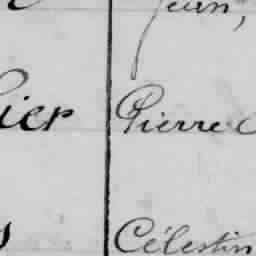 Jean,
ier Pierre
Célestin